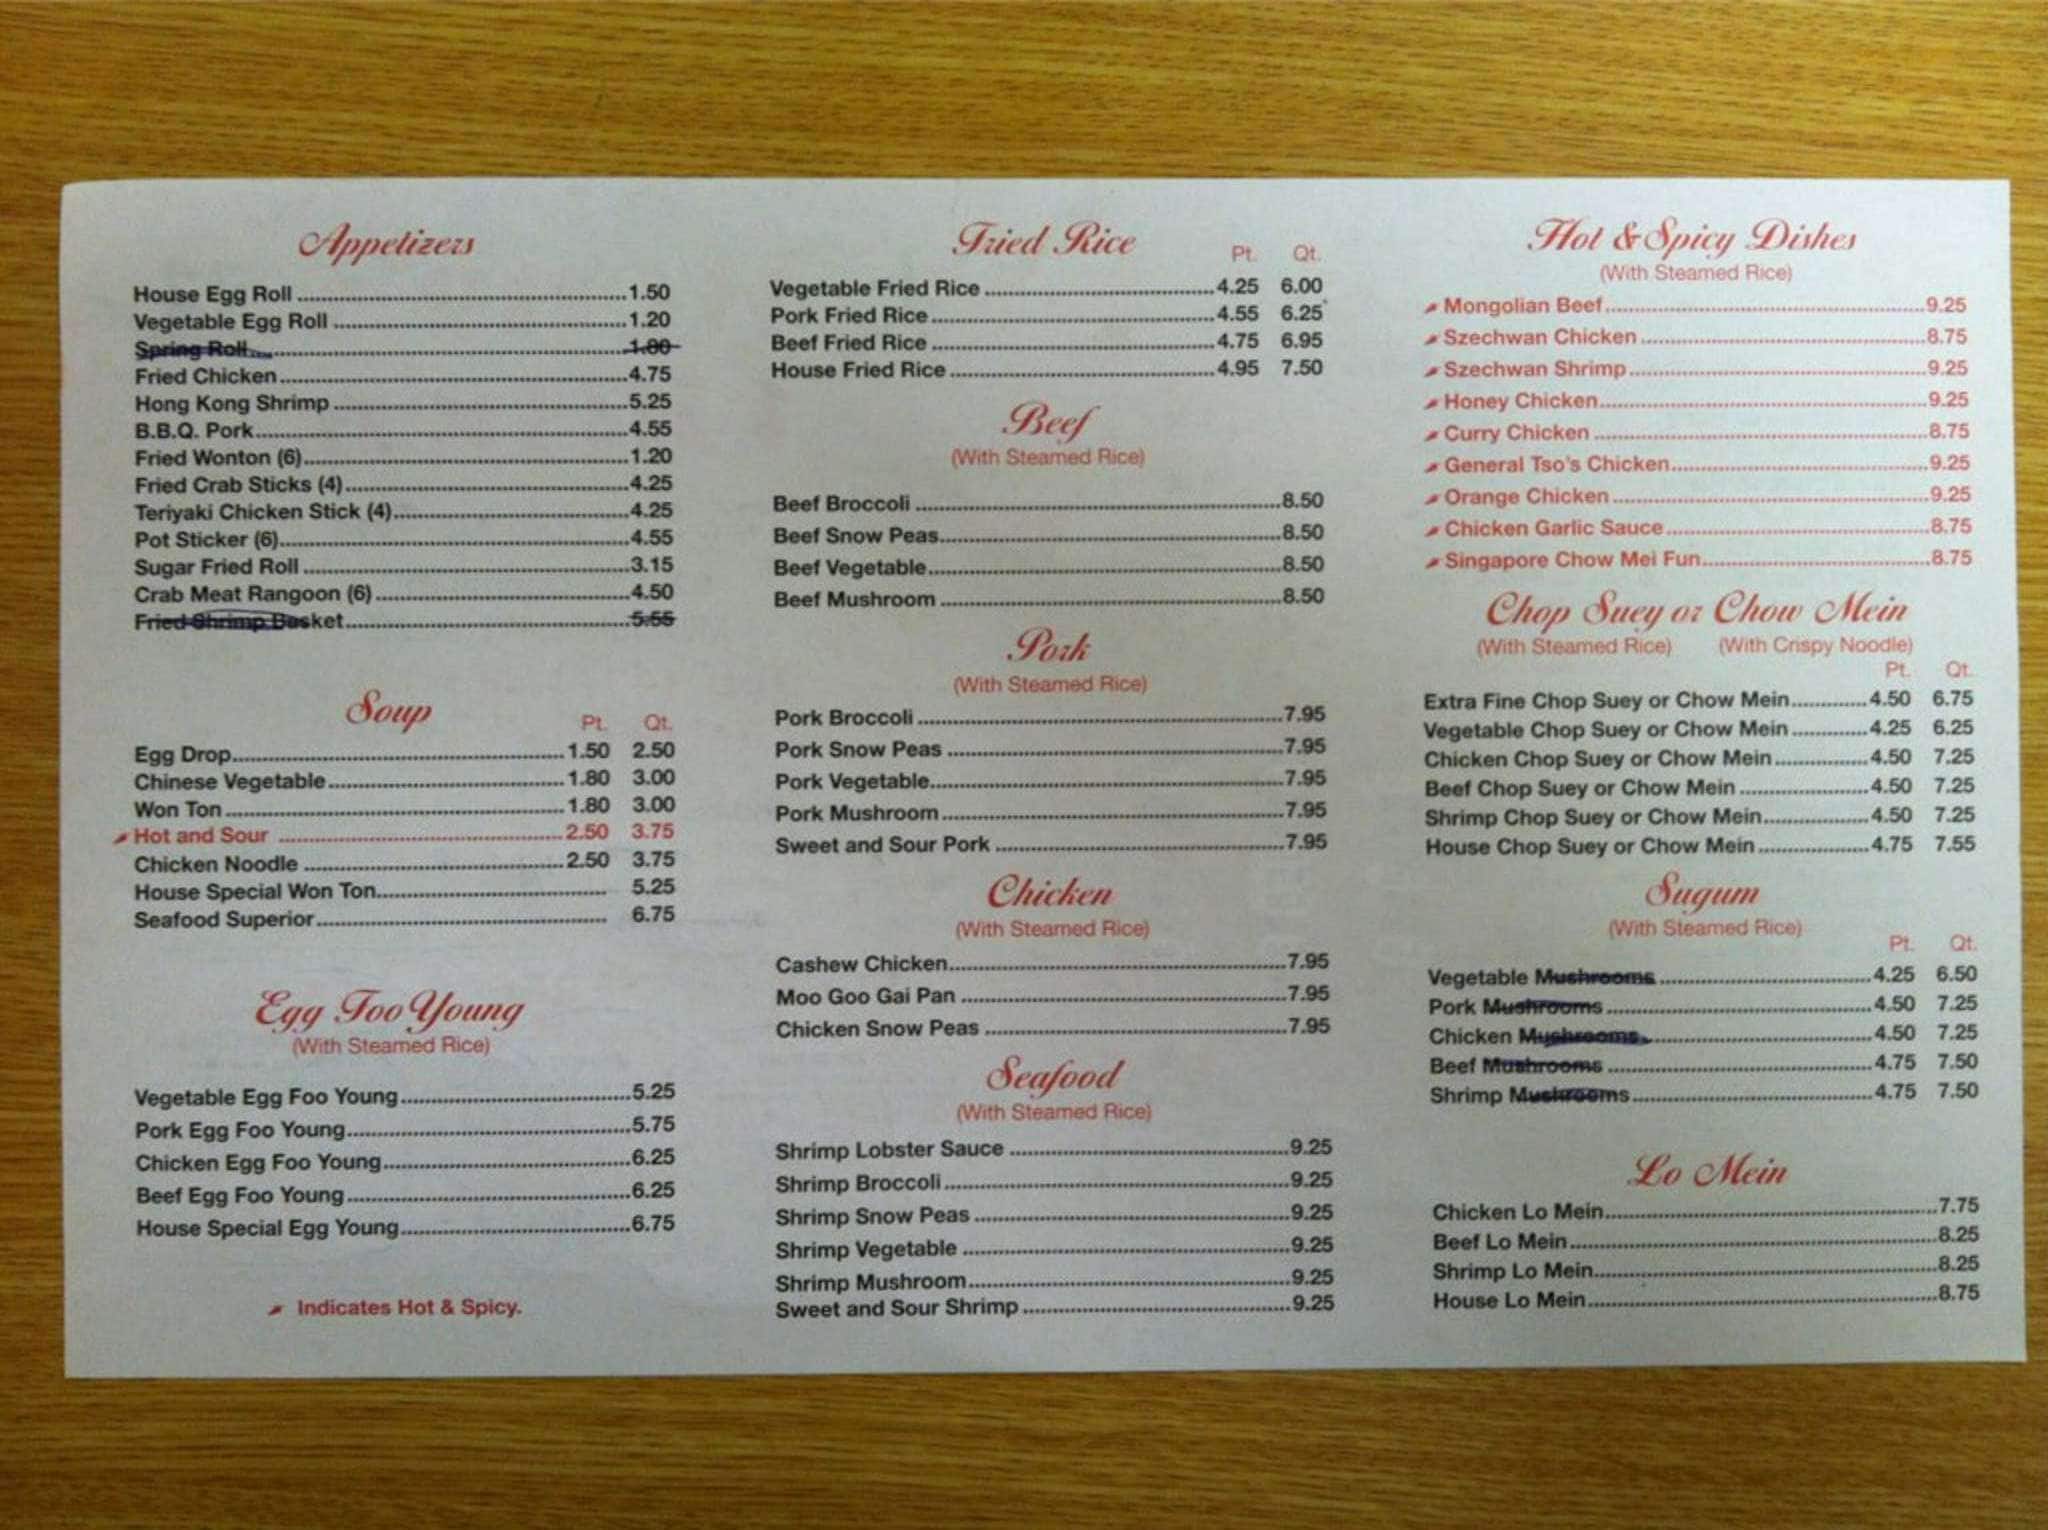 Appetizers
House Egg Roll 1.50
Vegetable Egg Roll 1.20
Spring Roll 1.80
Fried Chicken 4.75
Hong Kong Shrimp 5.25
B.B.Q. Pork 4.55
Fried Wonton (6) 1.20
Fried Crab Sticks (4) 4.25
Teriyaki Chicken Stick (4) 4.25
Pot Sticker (6) 4.55
Sugar Fried Roll 3.15
Crab Meat Rangoon (6) 4.50
Fried Shrimp Basket 5.55
Soup Pt. Qt.
Egg Drop 1.50 2.50
Chinese Vegetable 1.80 3.00
Won Ton 1.80 3.00
Hot and Sour 2.50 3.75
Chicken Noodle 2.50 3.75
House Special Won Ton 5.25
Seafood Superior 6.75
Egg Foo Young
(With Steamed Rice)
Vegetable Egg Foo Young 5.25
Pork Egg Foo Young 5.75
Chicken Egg Foo Young 6.25
Beef Egg Foo Young 6.25
House Special Egg Young 6.75
Indicates Hot & Spicy.
Fried Rice Pt. Qt.
Vegetable Fried Rice 4.25 6.00
Pork Fried Rice 4.55 6.25
Beef Fried Rice 4.75 6.95
House Fried Rice 4.95 7.50
Beef
(With Steamed Rice)
Beef Broccoli 8.50
Beef Snow Peas 8.50
Beef Vegetable 8.50
Beef Mushroom 8.50
Pork
(With Steamed Rice)
Pork Broccoli 7.95
Pork Snow Peas 7.95
Pork Vegetable 7.95
Pork Mushroom 7.95
Sweet and Sour Pork 7.95
Chicken
(With Steamed Rice)
Cashew Chicken 7.95
Moo Goo Gai Pan 7.95
Chicken Snow Peas 7.95
Seafood
(With Steamed Rice)
Shrimp Lobster Sauce 9.25
Shrimp Broccoli 9.25
Shrimp Snow Peas 9.25
Shrimp Vegetable 9.25
Shrimp Mushroom 9.25
Sweet and Sour Shrimp 9.25
Hot & Spicy Dishes
(With Steamed Rice)
Mongolian Beef 9.25
Szechwan Chicken 8.75
Szechwan Shrimp 9.25
Honey Chicken 9.25
Curry Chicken 8.75
General Tso's Chicken 9.25
Orange Chicken 9.25
Chicken Garlic Sauce 8.75
Singapore Chow Mei Fun 8.75
Chop Suey or Chow Mein
(With Steamed Rice) (With Crispy Noodle)
Pt. Qt.
Extra Fine Chop Suey or Chow Mein 4.50 6.75
Vegetable Chop Suey or Chow Mein 4.25 6.25
Chicken Chop Suey or Chow Mein 4.50 7.25
Beef Chop Suey or Chow Mein 4.50 7.25
Shrimp Chop Suey or Chow Mein 4.50 7.25
House Chop Suey or Chow Mein 4.75 7.55
Sugum
(With Steamed Rice)
Pt. Qt.
Vegetable Mushrooms 4.25 6.50
Pork Mushrooms 4.50 7.25
Chicken Mushrooms 4.50 7.25
Beef Mushrooms 4.75 7.50
Shrimp Mushrooms 4.75 7.50
Lo Mein
Chicken Lo Mein 7.75
Beef Lo Mein 8.25
Shrimp Lo Mein 8.25
House Lo Mein 8.75